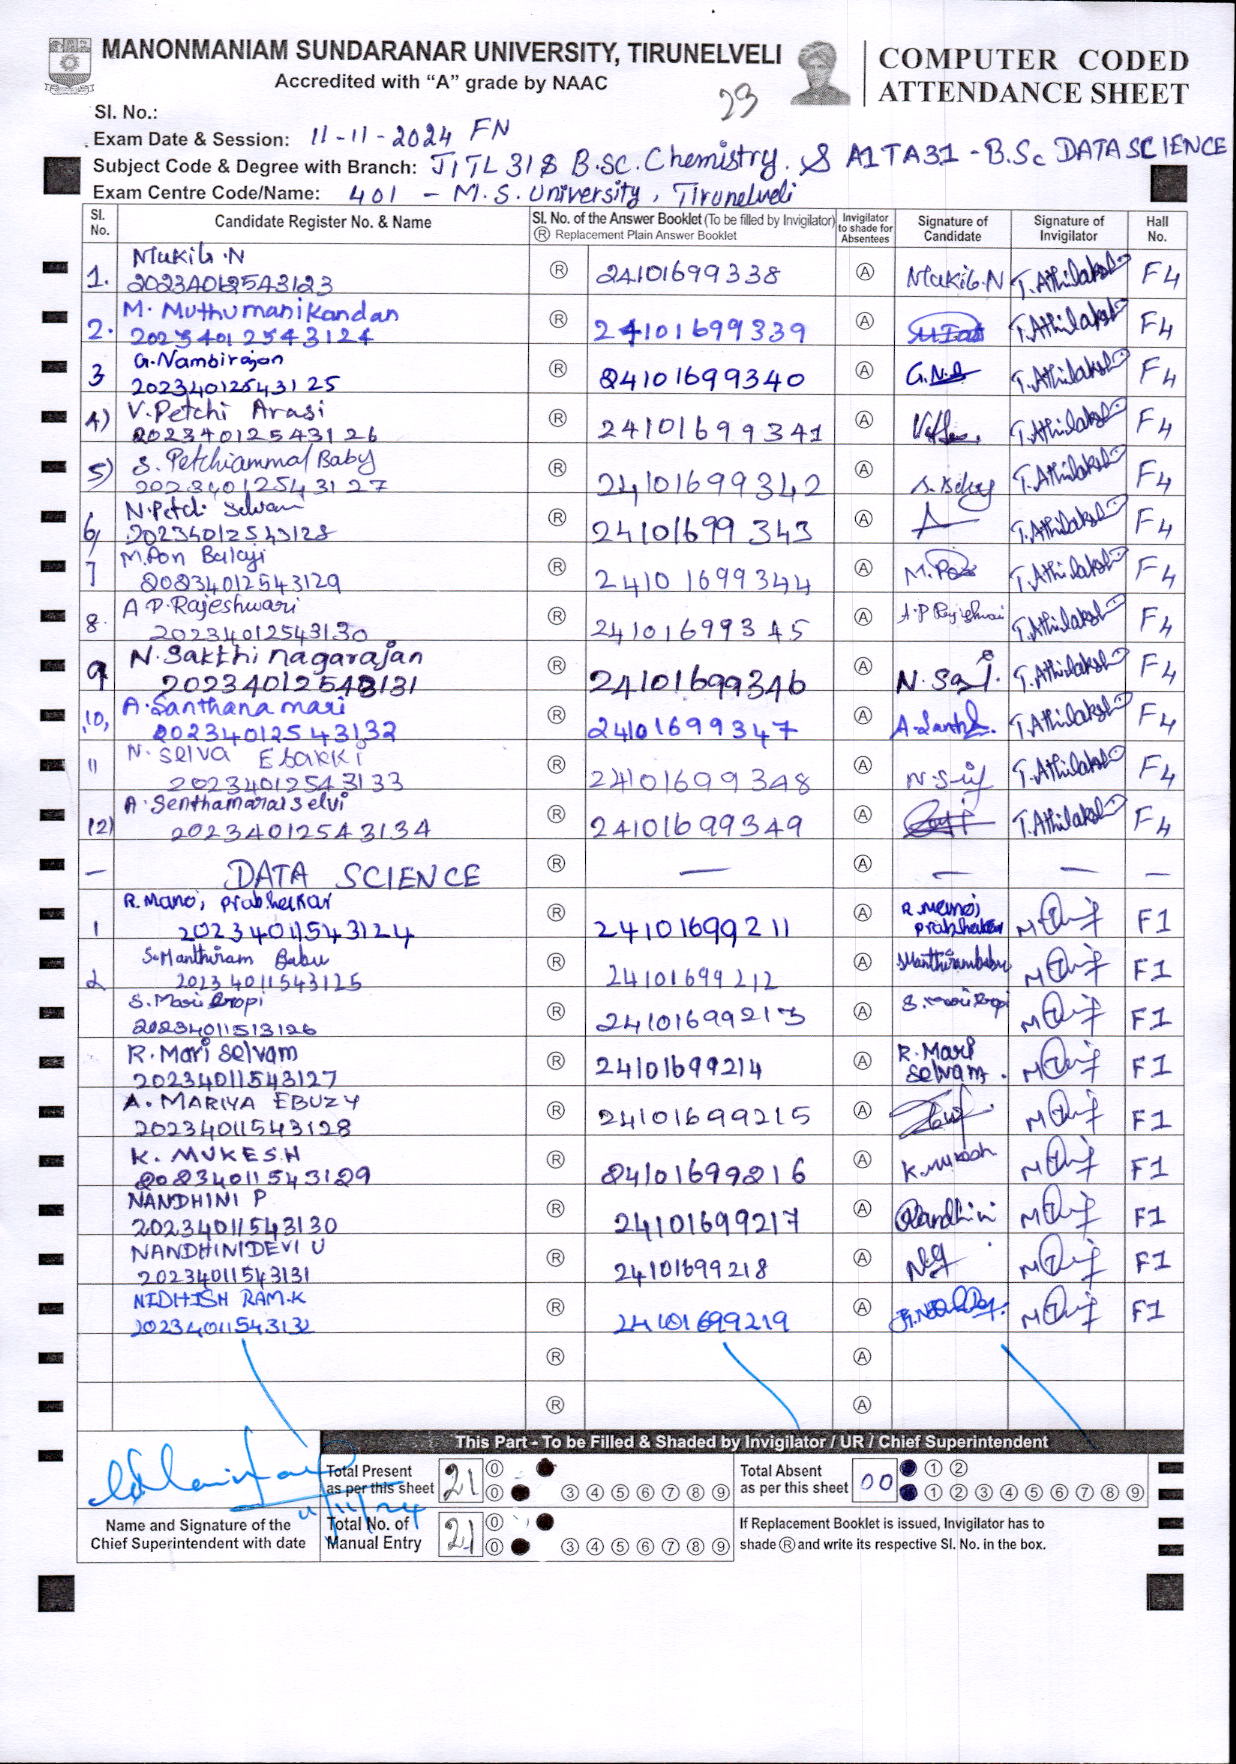 MANONMANIAM SUNDARANAR UNIVERSITY, TIRUNELVELI
Accredited with “A” grade by NAAC
COMPUTER CODED
ATTENDANCE SHEET
23
Sl. No.:
Exam Date & Session: 11-11-2024 FN
Subject Code & Degree with Branch: JITL31 & B.Sc. Chemistry. & A1TA31 - B.Sc DATA SCIENCE
Exam Centre Code/Name: 401 - M.S. University, Tirunelveli
Sl. No. Candidate Register No. & Name Sl. No. of the Answer Booklet (To be filled by Invigilator) Ⓡ Replacement Plain Answer Booklet Invigilator to shade for Absentees Signature of Candidate Signature of Invigilator Hall No.
Mukil.N
1. 20234012543123 Ⓡ 24101699338 Ⓐ Mukil.N T.Athilakshmi F4
M. Muthumanikandan
2. 20234012543124 Ⓡ 24101699339 Ⓐ T.Athilakshmi F4
G.Nambirajan
3 20234012543125 Ⓡ 24101699340 Ⓐ T.Athilakshmi F4
V.Petchi Arasi
4) 20234012543126 Ⓡ 24101699341 Ⓐ T.Athilakshmi F4
S. Petchiammal Baby
5) 20234012543127 Ⓡ 24101699342 Ⓐ S. Baby T.Athilakshmi F4
N.Petchi Selvam
6, 20234012543128 Ⓡ 24101699343 Ⓐ T.Athilakshmi F4
M.Pon Balaji
7 20234012543129 Ⓡ 24101699344 Ⓐ T.Athilakshmi F4
A P.Rajeshwari
8. 20234012543130 Ⓡ 24101699345 Ⓐ A.P Rajeshwari T.Athilakshmi F4
N.Sakthi nagarajan
9 20234012543131 Ⓡ 24101699346 Ⓐ T.Athilakshmi F4
A.Santhana mari
10, 20234012543132 Ⓡ 24101699347 Ⓐ T.Athilakshmi F4
N. Selva Esakki
11 20234012543133 Ⓡ 24101699348 Ⓐ T.Athilakshmi F4
A.Senthamarai Selvi
12) 20234012543134 Ⓡ 24101699349 Ⓐ T.Athilakshmi F4
— DATA SCIENCE Ⓡ — Ⓐ — — —
R.Manoj prabhakar
1 20234011543124 Ⓡ 24101699211 Ⓐ R.Manoj prabhakar F1
S.Manthiram Babu
2 20234011543125 Ⓡ 24101699212 Ⓐ S.Manthirambabu F1
S.Mari Gropi
20234011513126 Ⓡ 24101699213 Ⓐ S.Mari Gropi F1
R.Mari Selvam
20234011543127 Ⓡ 24101699214 Ⓐ R.Mari Selvam. F1
A. MARIYA EBUZY
20234011543128 Ⓡ 24101699215 Ⓐ F1
K. MUKESH
20234011543129 Ⓡ 24101699216 Ⓐ K.Mukesh F1
NANDHINI P
20234011543130 Ⓡ 24101699217 Ⓐ Nandhini F1
NANDHINIDEVI U
20234011543131 Ⓡ 24101699218 Ⓐ F1
NIDHISH RAM.K
20234011543132 Ⓡ 24101699219 Ⓐ F1
Ⓡ Ⓐ
Ⓡ Ⓐ
This Part - To be Filled & Shaded by Invigilator / UR / Chief Superintendent
11/11/24
Name and Signature of the
Chief Superintendent with date
Total Present
as per this sheet 21 ⓪ ⓪ ③ ④ ⑤ ⑥ ⑦ ⑧ ⑨
Total Absent
as per this sheet 00 ① ② ① ② ③ ④ ⑤ ⑥ ⑦ ⑧ ⑨
Total No. of
Manual Entry 21 ⓪ ⓪ ③ ④ ⑤ ⑥ ⑦ ⑧ ⑨
If Replacement Booklet is issued, Invigilator has to
shade Ⓡ and write its respective Sl. No. in the box.